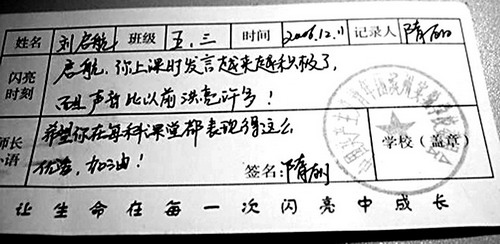 姓名 刘启航 班级 五.三 时间 2006.12.11 记录人 隋丽
闪亮时刻
启航，你上课时发言越来越积极了，
而且声音比以前洪亮许多！
师长小语
希望你在每科课堂都表现得这么
优秀，加油！
签名：隋丽
学校（盖章）
让生命在每一次闪亮中成长